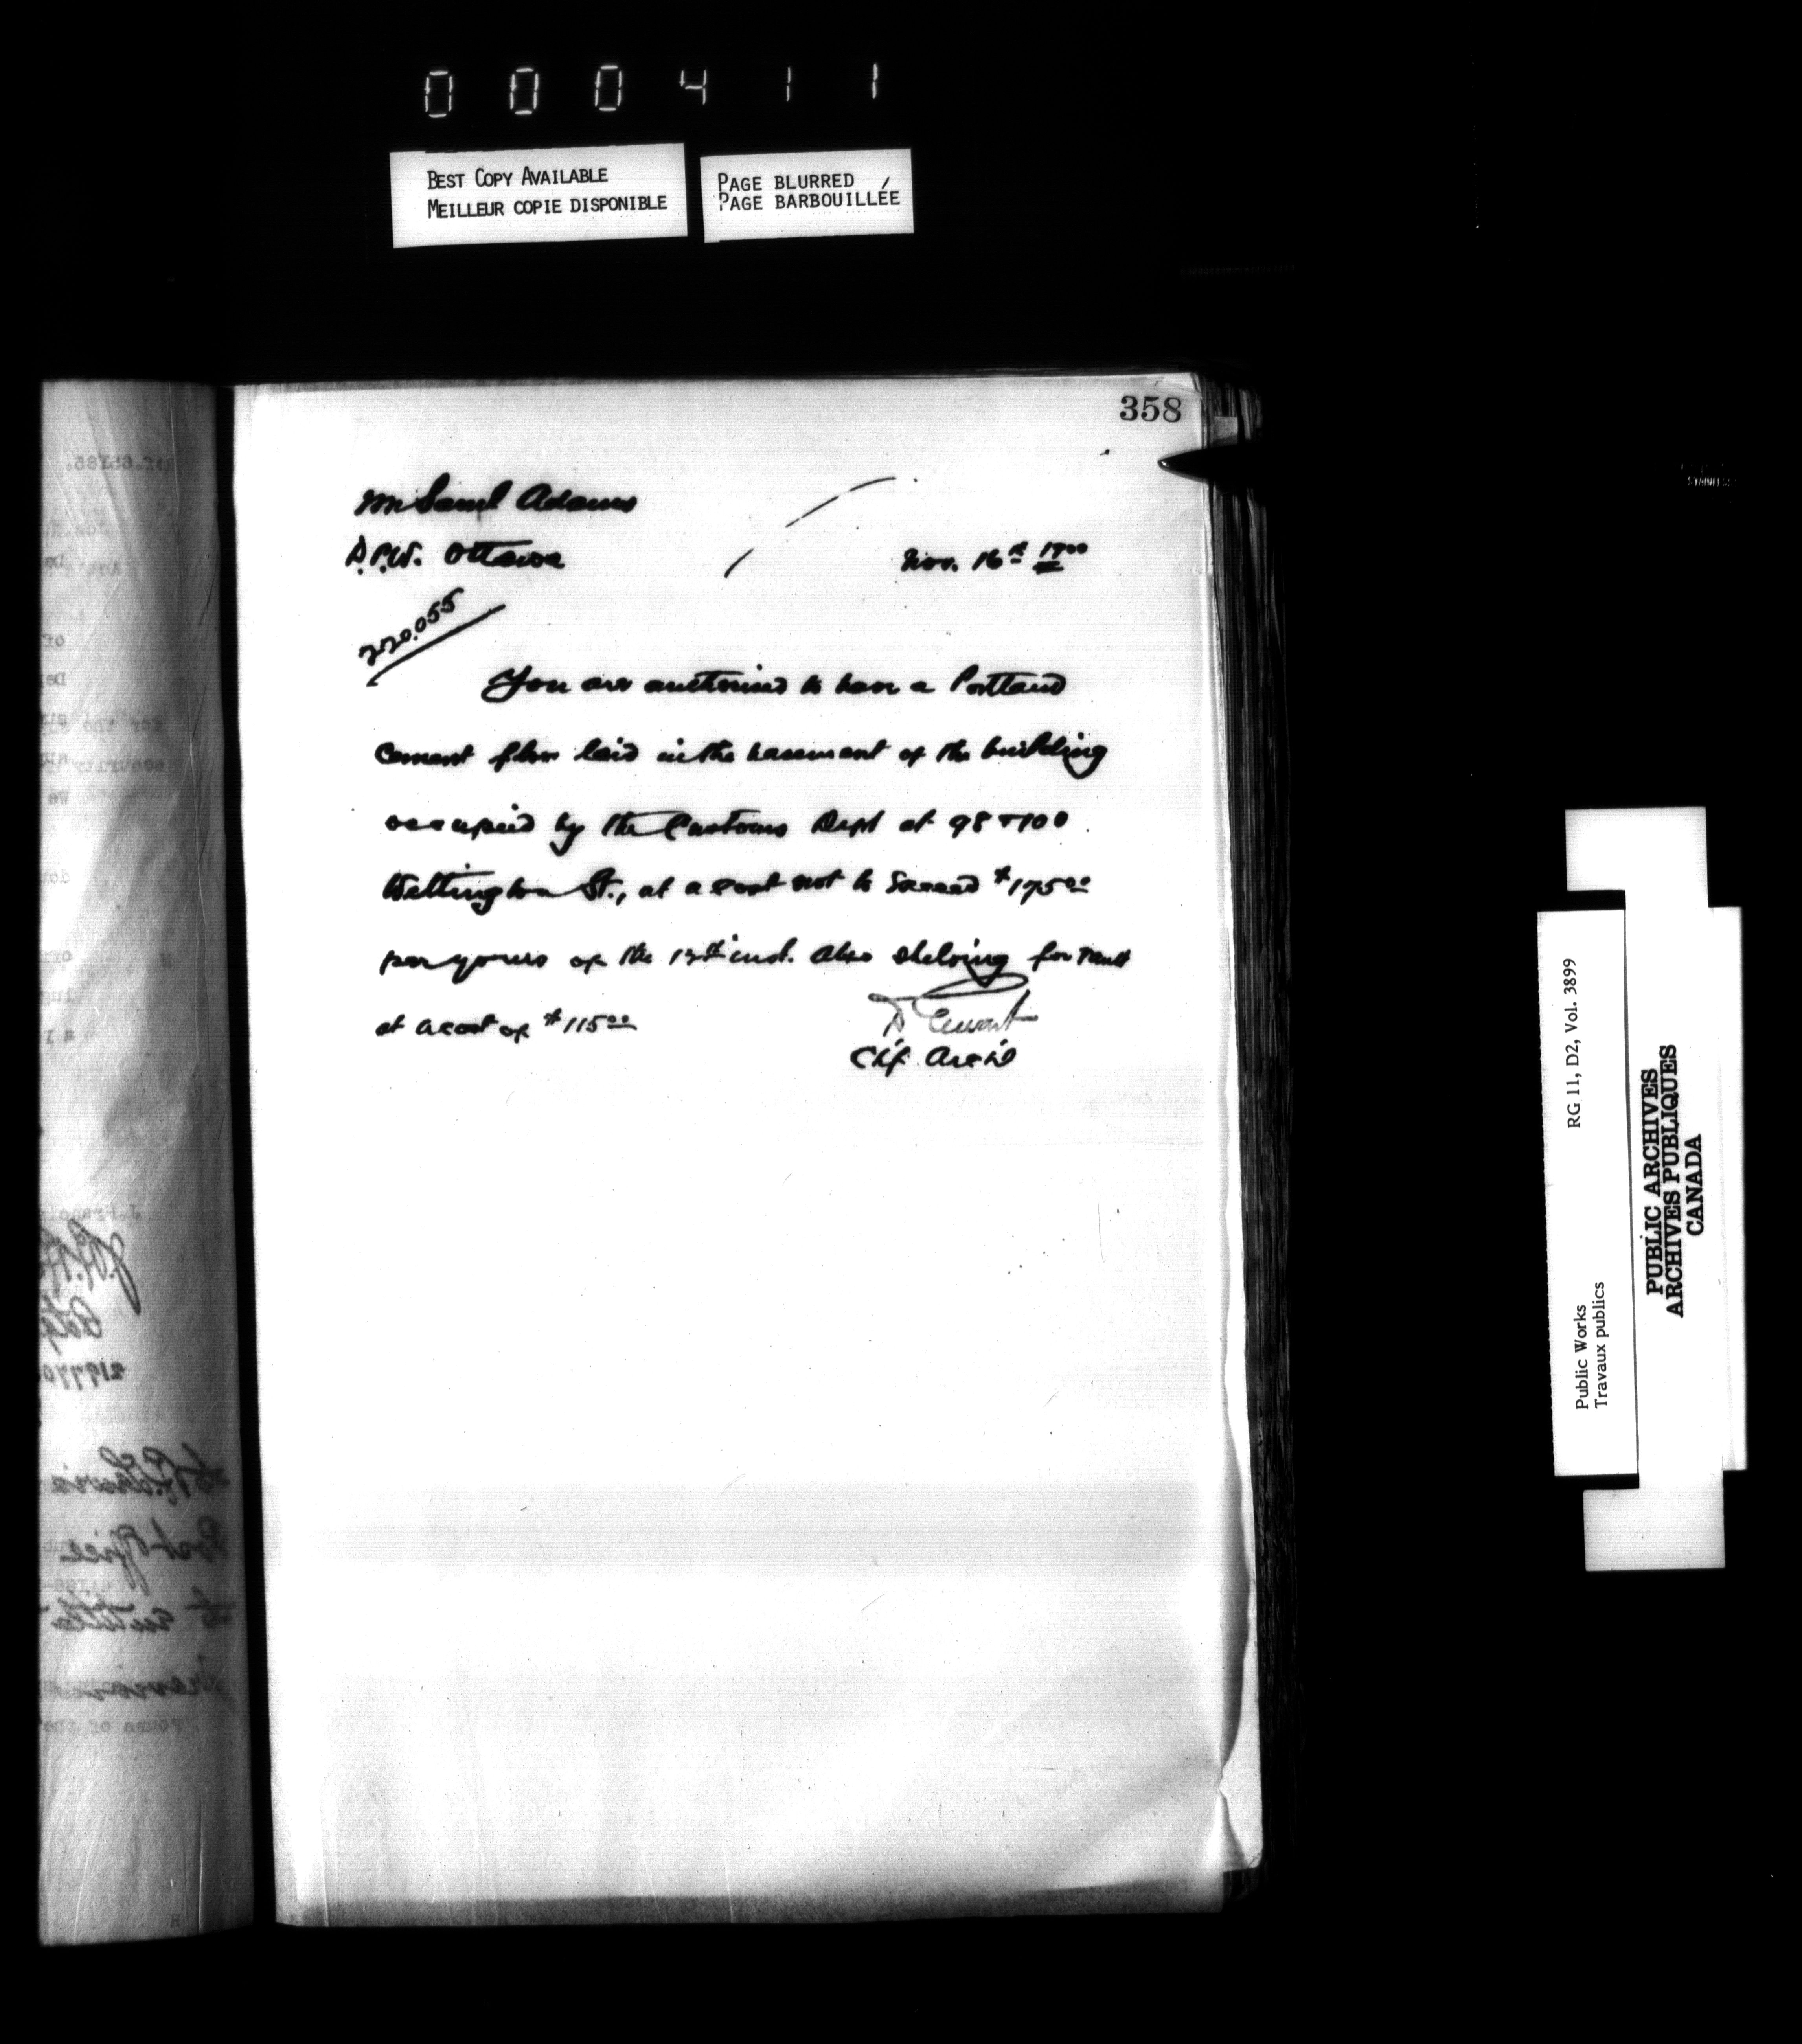 000411
BEST COPY AVAILABLE
MEILLEUR COPIE DISPONIBLE
PAGE BLURRED
PAGE BARBOUILLÉE
358
Mr Saml Adams
D.P.W. Ottawa
Nov. 16th 1900
220.055
You are authorised to have a Portland
cement floor laid in the basement of the building
occupied by the Customs Dept at 98 + 100
Wellington St., at a cost not to exceed $175.00
per yours of the 15th inst. Also shelving for vault
at a cost of $115.00
D Ewart
Chf. Arch't
RG 11, D2, Vol. 3899
Public Works
Travaux publics
PUBLIC ARCHIVES
ARCHIVES PUBLIQUES
CANADA